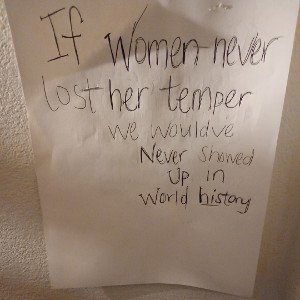 If Women never
lost her temper
we would've
Never Showed
Up in
World history